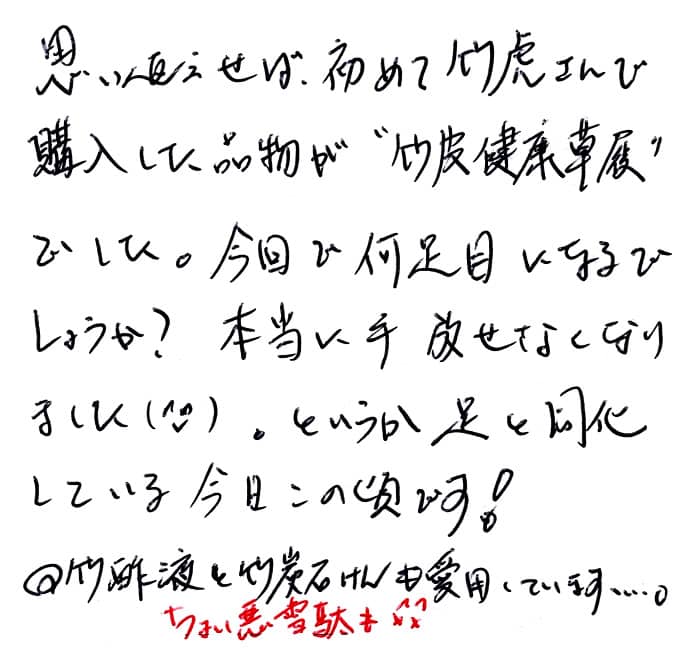 思い返せば、初めて竹虎さんで
購入した品物が〝竹皮健康草履〟
でした。今回で何足目になるで
しょうか？本当に手放せなくなり
ました(^^)。というか足と同化
している今日この頃です！
@竹酢液と竹炭石けんも愛用しています…。
ちょい悪雪駄も^^